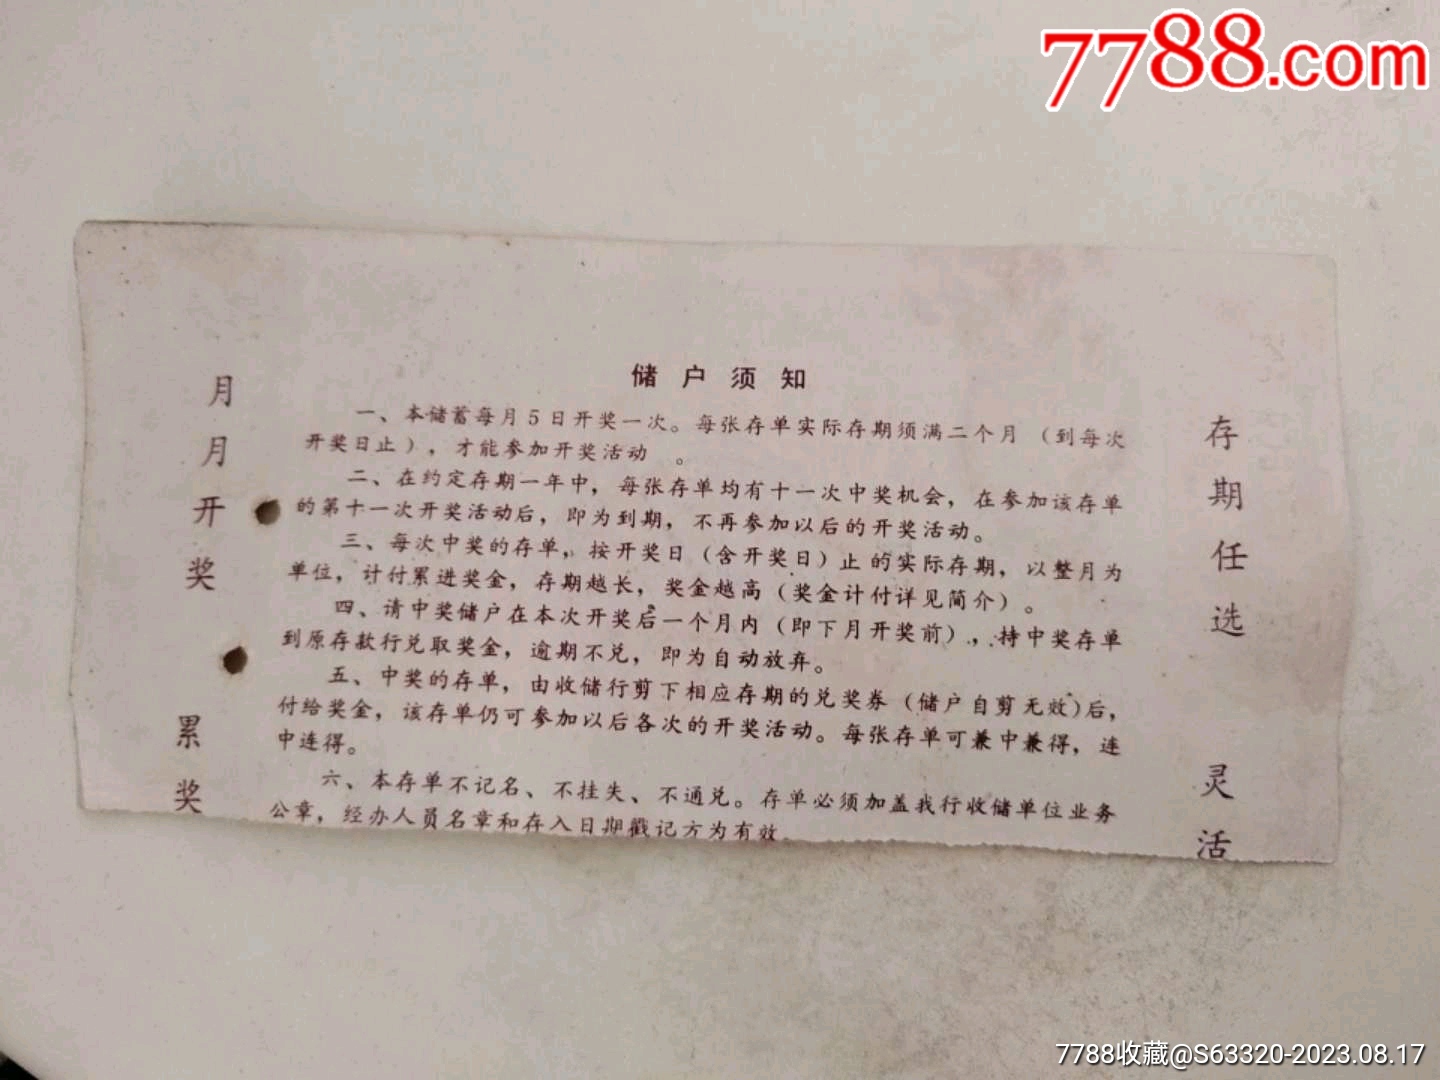 7788.com
储户须知
一、本储蓄每月5日开奖一次。每张存单实际存期须满二个月（到每次
开奖日止），才能参加开奖活动 。
二、在约定存期一年中，每张存单均有十一次中奖机会，在参加该存单
的第十一次开奖活动后，即为到期，不再参加以后的开奖活动。
三、每次中奖的存单，按开奖日（含开奖日）止的实际存期，以整月为
单位，计付累进奖金，存期越长，奖金越高（奖金计付详见简介）。
四、请中奖储户在本次开奖后一个月内（即下月开奖前），持中奖存单
到原存款行兑取奖金，逾期不兑，即为自动放弃。
五、中奖的存单，由收储行剪下相应存期的兑奖券（储户自剪无效）后，
付给奖金，该存单仍可参加以后各次的开奖活动。每张存单可兼中兼得，连
中连得。
六、本存单不记名、不挂失、不通兑。存单必须加盖我行收储单位业务
公章，经办人员名章和存入日期戳记方为有效。
月月开奖
累奖
存期任选
灵活
7788收藏@S63320-2023.08.17